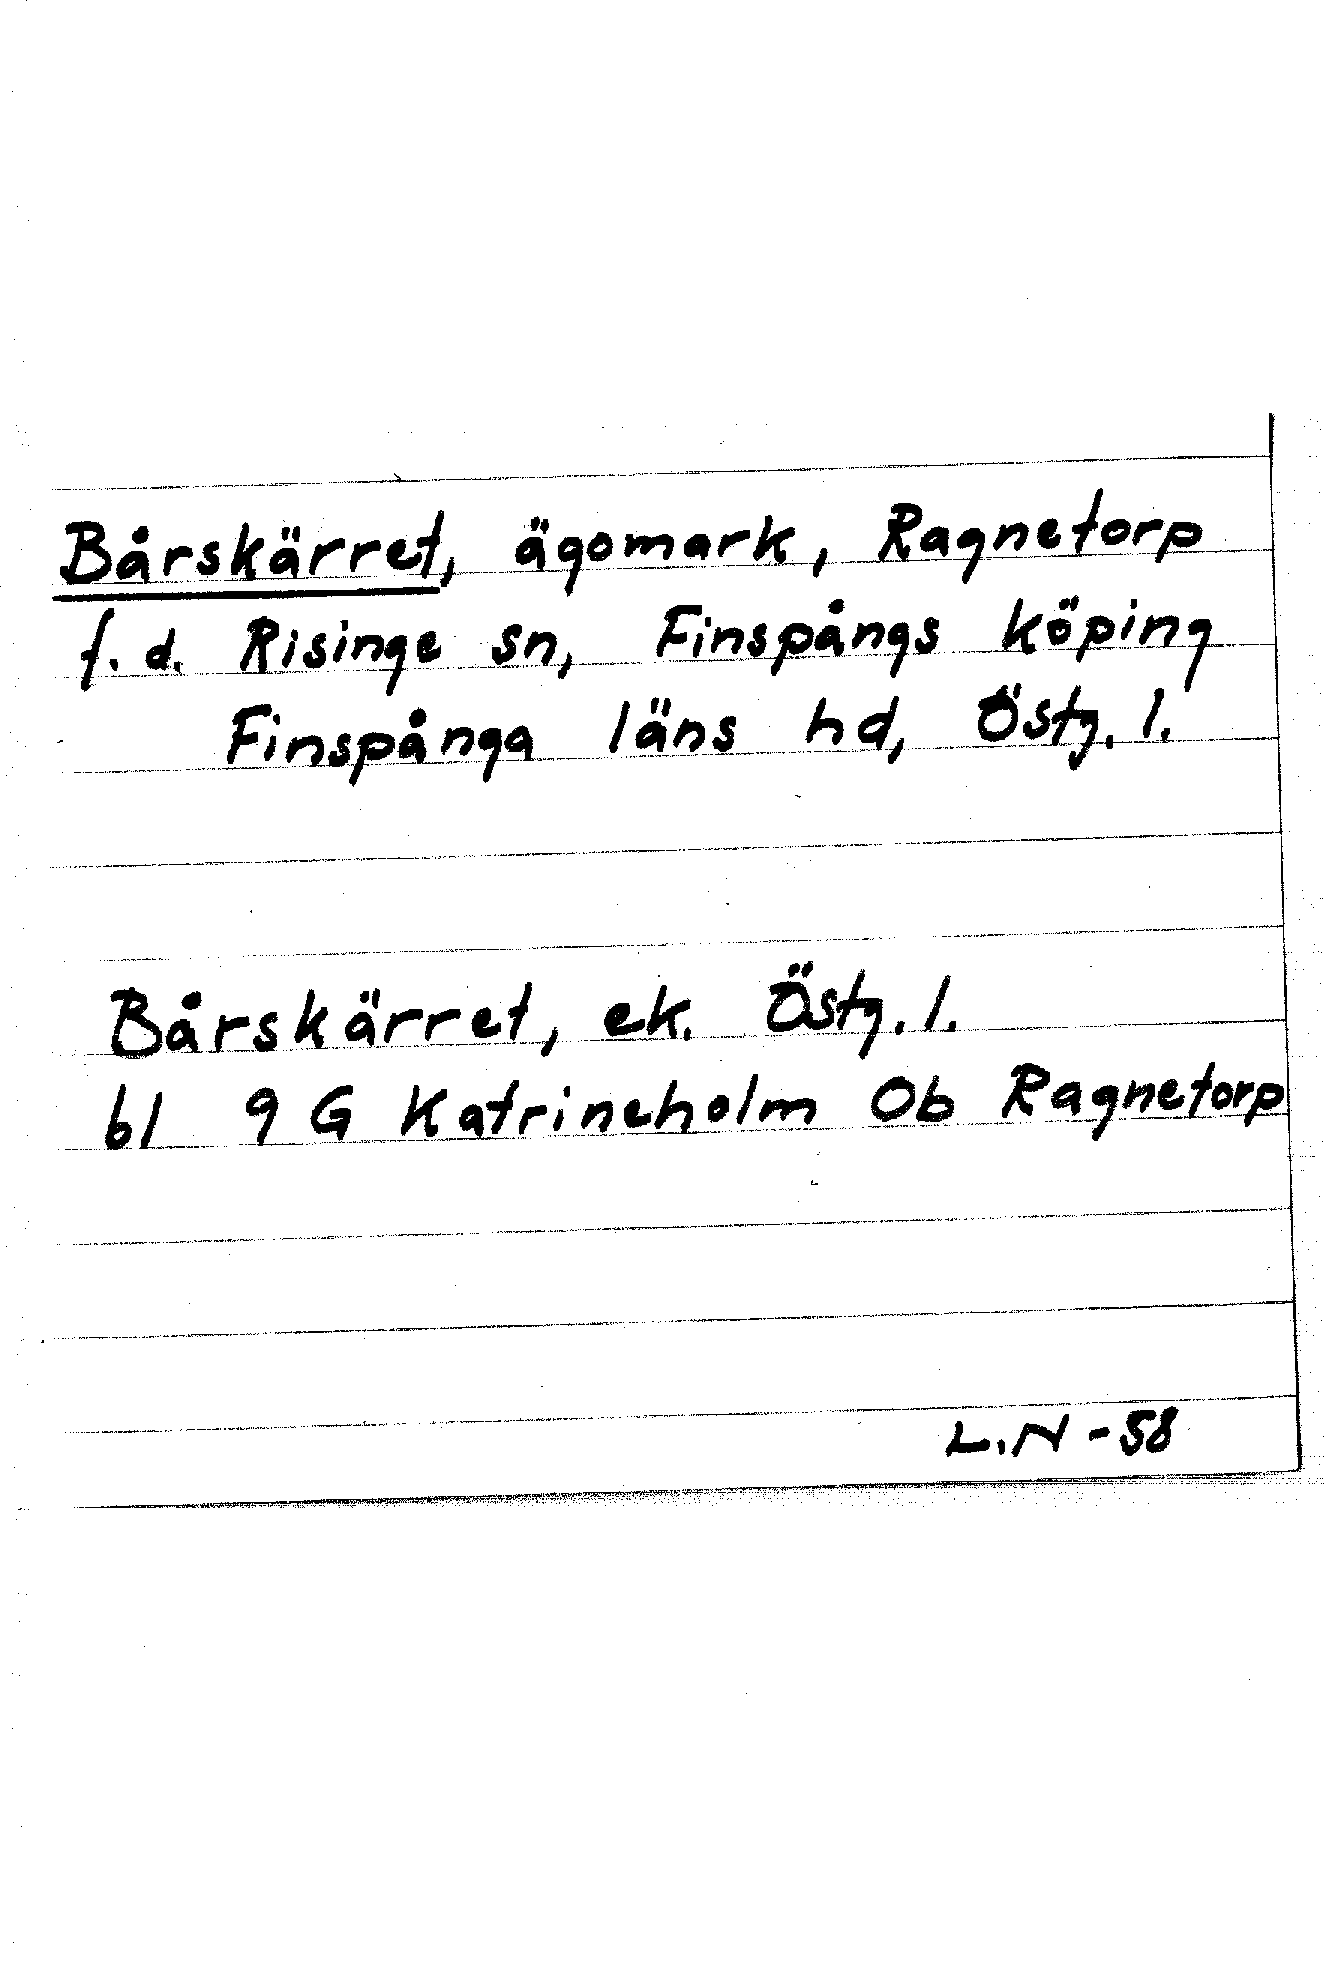 Bårskärret, ägomark, Ragnetorp
f.d. Risinge sn, Finspångs köping
Finspånga läns hd, Östg.l.
Bårskärret, ek. Östg.l.
bl 9 G Katrineholm Ob Ragnetorp
L.N -58